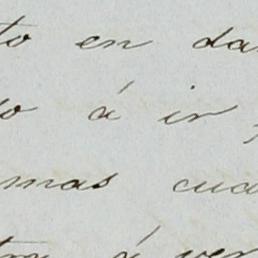 to en da
o á ir
mas cua
á ver